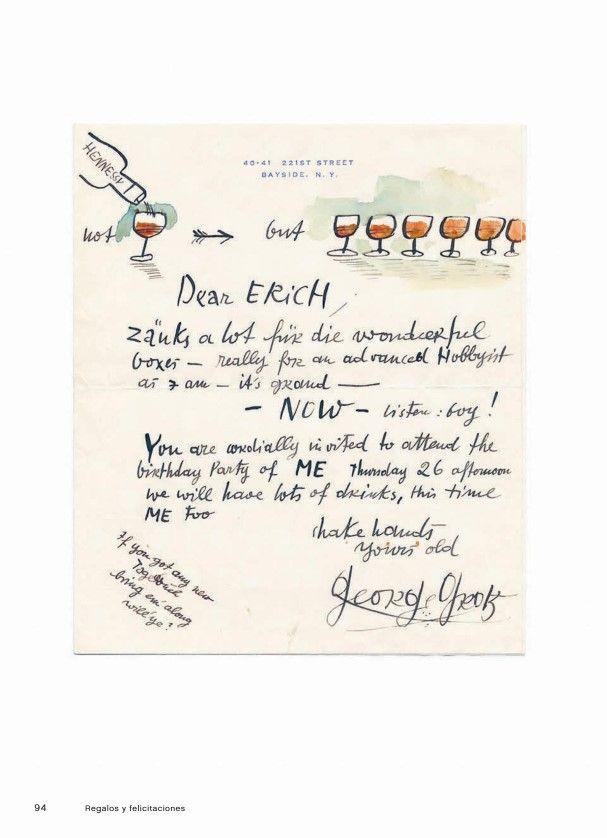 HENNESSY
40-41 221ST STREET
BAYSIDE. N. Y.
not → but
Dear ERiCH,
zänks a lot für die wonderful
boxes — really for an advanced Hobbyist
as I am — it's grand —
— NOW — listen : boy !
You are cordially invited to attend the
birthday Party of ME Thursday 26 afternoon
we will have lots of drinks, this time
ME too
shake hands
yours old
George Grosz
If you got any new
bring em along
will ye?
94 Regalos y felicitaciones